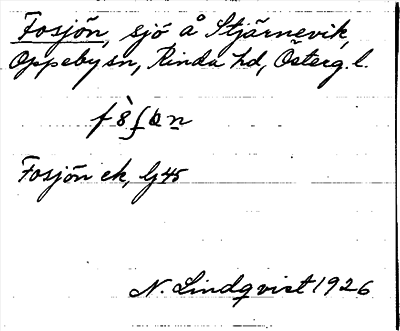 Fosjön, sjö å Stjärnevik,
Oppeby sn, Kinda hd, Österg. l.
Fosjön ek, Gj 45
N. Lindqvist 1926